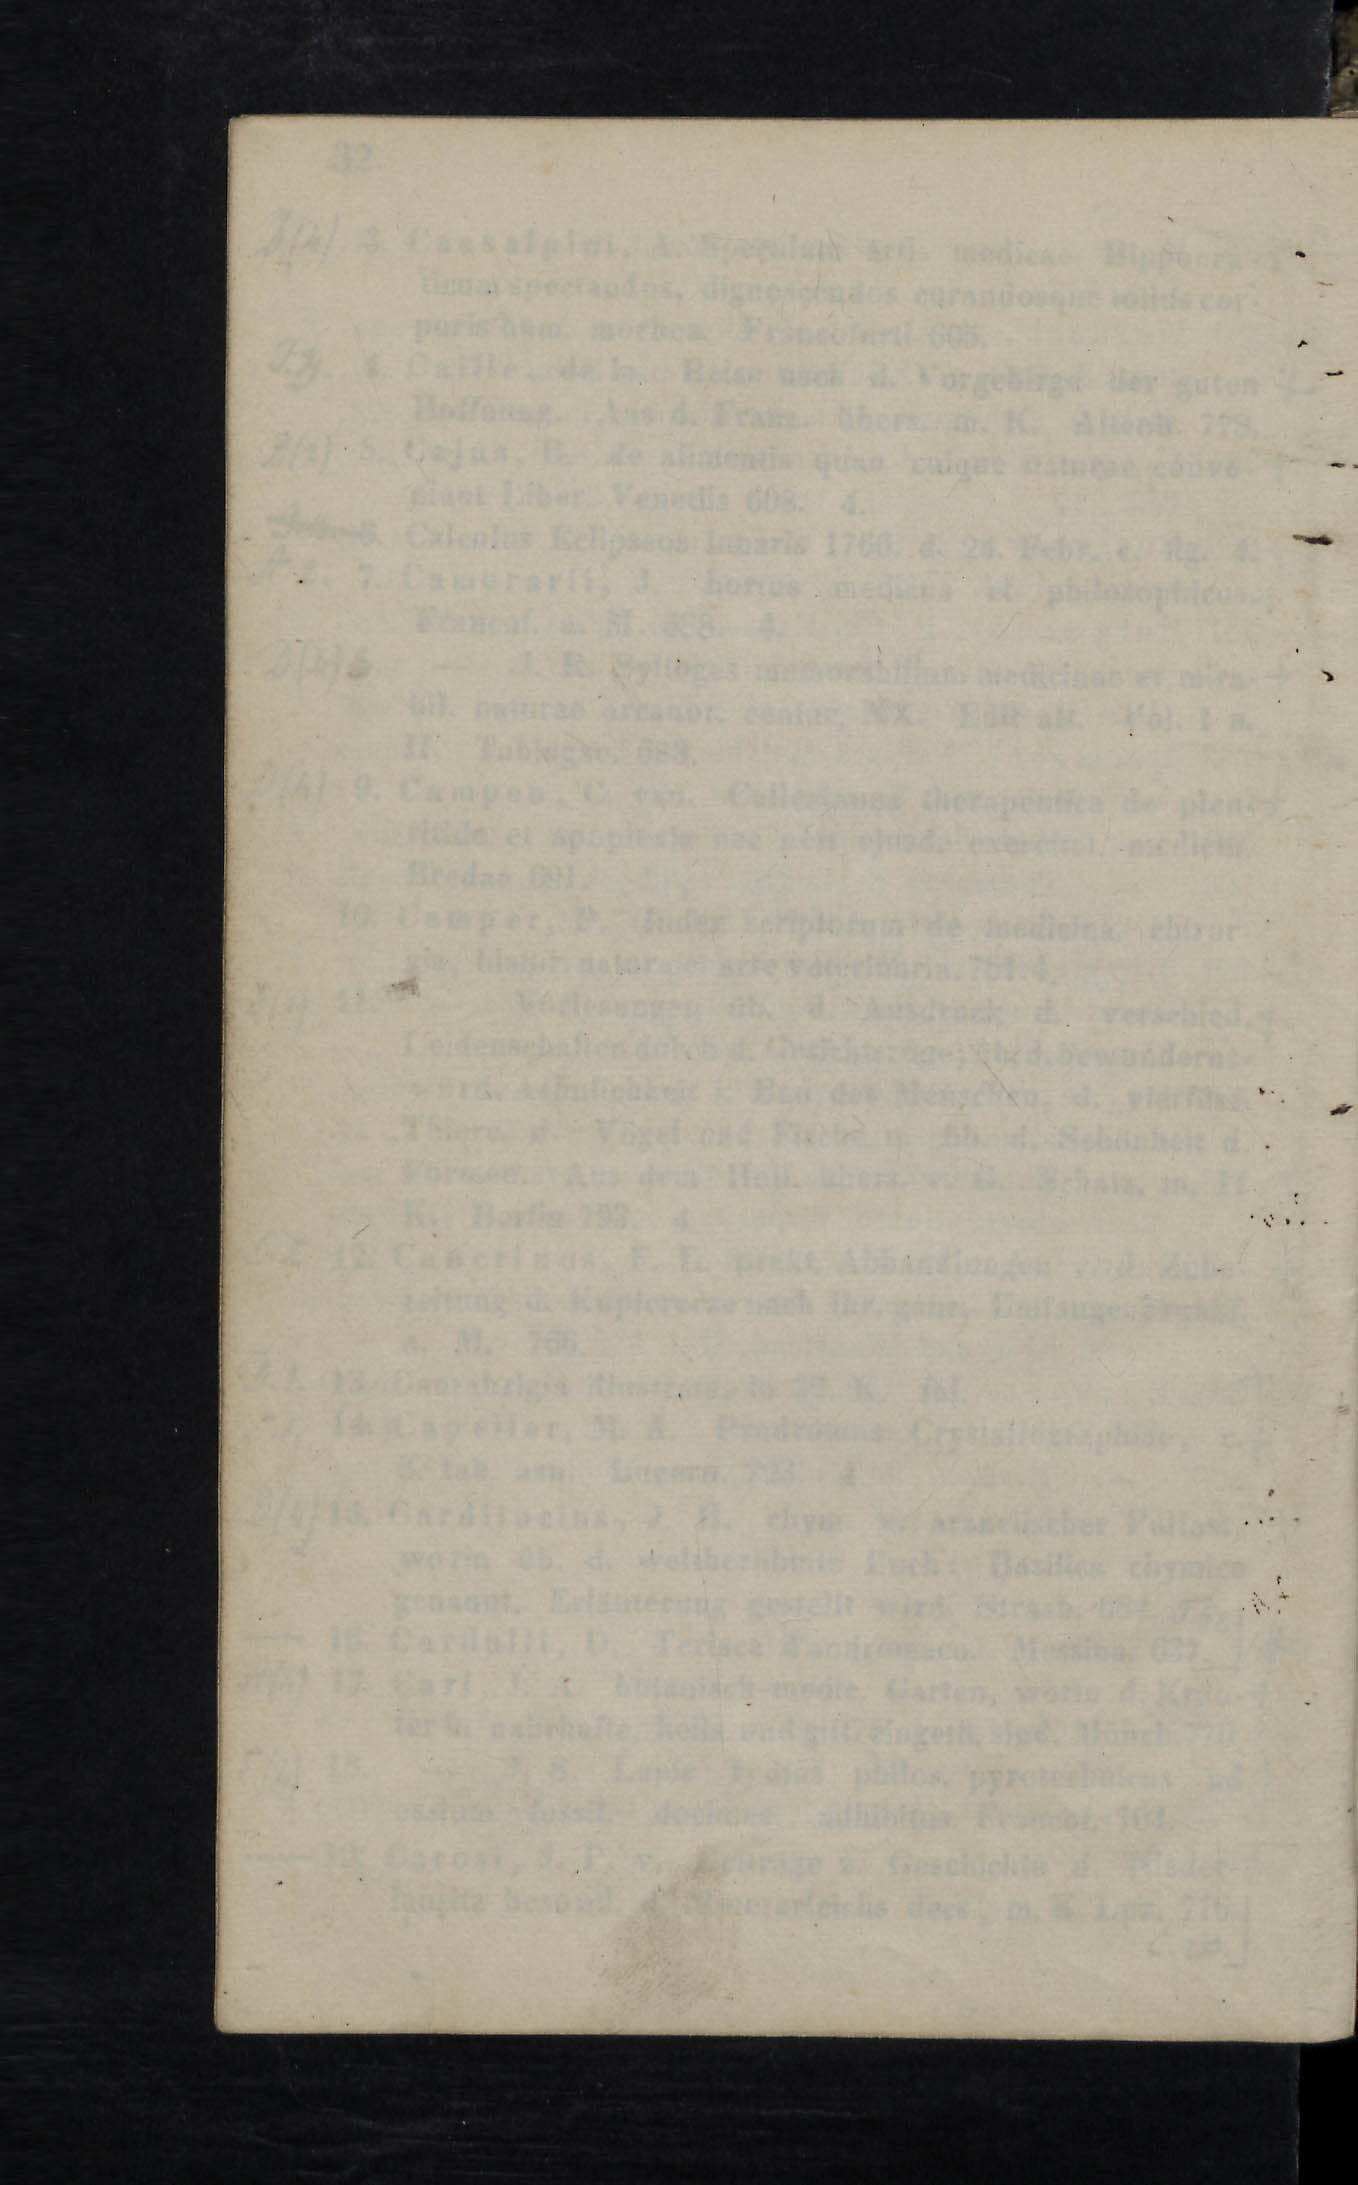 32
3. Caesalpini, A. Speculum artis medicae Hippocra-
ticum spectandos, dignoscendos curandosque
poris hum. morbos. Francofurti 605.
4. Caille, de la, Reise nach d. Vorgebirge der guten
Hoffnung. Aus d. Franz. übers. m. K. Altenb. 778.
5. Cajus, B. de alimentis quae cuique naturae conve-
niant Liber. Venetiis 608. 4.
6. Calculus Eclipseos lunaris 1766. d. 24. Febr. c. fig. 4.
7. Camerarii, J. hortus medicus et philosophicus.
Francof. a. M. 588. 4.
8. — J. R. Sylloges memorabilium medicinae et mira-
bil. naturae arcanor. centur. XX. Edit alt. Vol. I u.
II. Tubingae. 683.
9. Campen, C. van. Collectanea therapeutica de pleu-
ritide et apoplexia nec non ejusd. exercitat. medicin.
Bredae 691.
10. Camper, P. Index scriptorum de medicina, chirur-
gia, histor. naturae arte veterinaria. 4.
11. — Vorlesungen üb. d. Ausdruck d. verschied.
Leidenschaften durch d. Gesichtszüge; üb. d. bewunderns-
würd. Aehnlichkeit i. Bau des Menschen, d. vierfüss.
Thiere, d. Vögel und Fische u. üb. d. Schönheit d.
Formen. Aus dem Holl. übers. v. G. Schatz, m. 11
K. Berlin 793. 4
12. Cancrinus, F. L. prakt. Abhandlungen v. d. Zube-
reitung d. Kupfererze nach ihr. ganz. Umfange. Frankf.
a. M. 766.
13. illustrata, in 29. K. fol.
14. Capeller, M. A. Prodromus Crystallographiae, c.
3. tab. aen. Lucern. 723 4
15. Cardilucius, J. H. chym. u. arzneiischer Pallast,
worin üb. d. weltberühmte Buch: Basilica chymica
genannt, Erläuterung gestellt wird. Strasb. 684
16. Cardulli, D. Teriaca d'andromaco. Messina. 637.
17. Carl, J. A. botanisch-medic. Garten, worin d. Kräu-
ter in nahrhafte, heils. und gift. eingeth. sind. Münch. 770
18. — J. S. Lapis Lydius philos. pyrotechnicus ad
ossium fossil. docimas. adhibitus. Francof. 704.
19. Carosi, J. P. v. Beiträge z. Geschichte d. Nieder-
lausitz besond. d. Mineralreichs ders., m. K. Lpz. 779.